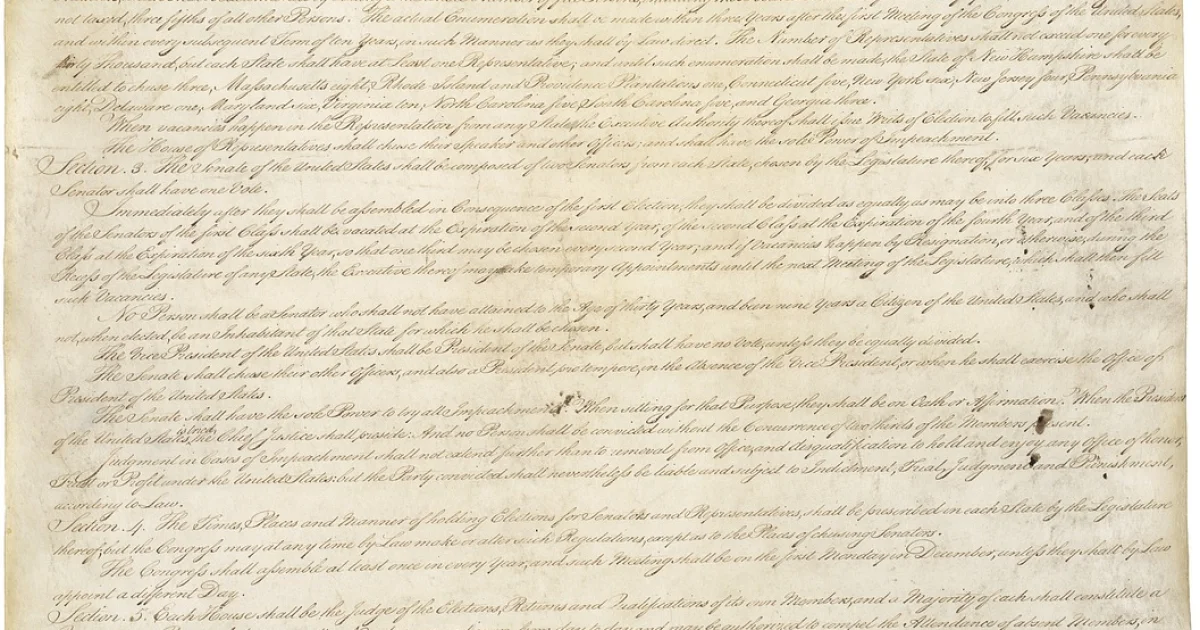 not taxed, three fifths of all other Persons. The actual Enumeration shall be made within three Years after the first Meeting of the Congress of the United States,
and within every subsequent Term of ten Years, in such Manner as they shall by Law direct. The Number of Representatives shall not exceed one for every
thirty Thousand, but each State shall have at Least one Representative; and until such enumeration shall be made, the State of New Hampshire shall be
entitled to chuse three, Massachusetts eight, Rhode-Island and Providence Plantations one, Connecticut five, New-York six, New Jersey four, Pennsylvania
eight, Delaware one, Maryland six, Virginia ten, North Carolina five, South Carolina five, and Georgia three.
When vacancies happen in the Representation from any State, the Executive Authority thereof shall issue Writs of Election to fill such Vacancies.
The House of Representatives shall chuse their Speaker and other Officers; and shall have the sole Power of Impeachment.
Section. 3. The Senate of the United States shall be composed of two Senators from each State, chosen by the Legislature thereof, for six Years; and each
Senator shall have one Vote.
Immediately after they shall be assembled in Consequence of the first Election, they shall be divided as equally as may be into three Classes. The Seats
of the Senators of the first Class shall be vacated at the Expiration of the second Year, of the second Class at the Expiration of the fourth Year, and of the third
Class at the Expiration of the sixth Year, so that one third may be chosen every second Year; and if Vacancies happen by Resignation, or otherwise, during the
Recess of the Legislature of any State, the Executive thereof may make temporary Appointments until the next Meeting of the Legislature, which shall then fill
such Vacancies.
No Person shall be a Senator who shall not have attained to the Age of thirty Years, and been nine Years a Citizen of the United States, and who shall
not, when elected, be an Inhabitant of that State for which he shall be chosen.
The Vice President of the United States shall be President of the Senate, but shall have no Vote, unless they be equally divided.
The Senate shall chuse their other Officers, and also a President pro tempore, in the Absence of the Vice President, or when he shall exercise the Office of
President of the United States.
The Senate shall have the sole Power to try all Impeachments. When sitting for that Purpose, they shall be on Oath or Affirmation. When the President
of the United States is tried, the Chief Justice shall preside: And no Person shall be convicted without the Concurrence of two thirds of the Members present.
Judgment in Cases of Impeachment shall not extend further than to removal from Office, and disqualification to hold and enjoy any Office of honor,
Trust or Profit under the United States: but the Party convicted shall nevertheless be liable and subject to Indictment, Trial, Judgment and Punishment,
according to Law.
Section. 4. The Times, Places and Manner of holding Elections for Senators and Representatives, shall be prescribed in each State by the Legislature
thereof; but the Congress may at any time by Law make or alter such Regulations, except as to the Places of chusing Senators.
The Congress shall assemble at least once in every Year, and such Meeting shall be on the first Monday in December, unless they shall by Law
appoint a different Day.
Section. 5. Each House shall be the Judge of the Elections, Returns and Qualifications of its own Members, and a Majority of each shall constitute a
from day to day, and may be authorized to compel the Attendance of absent Members, in